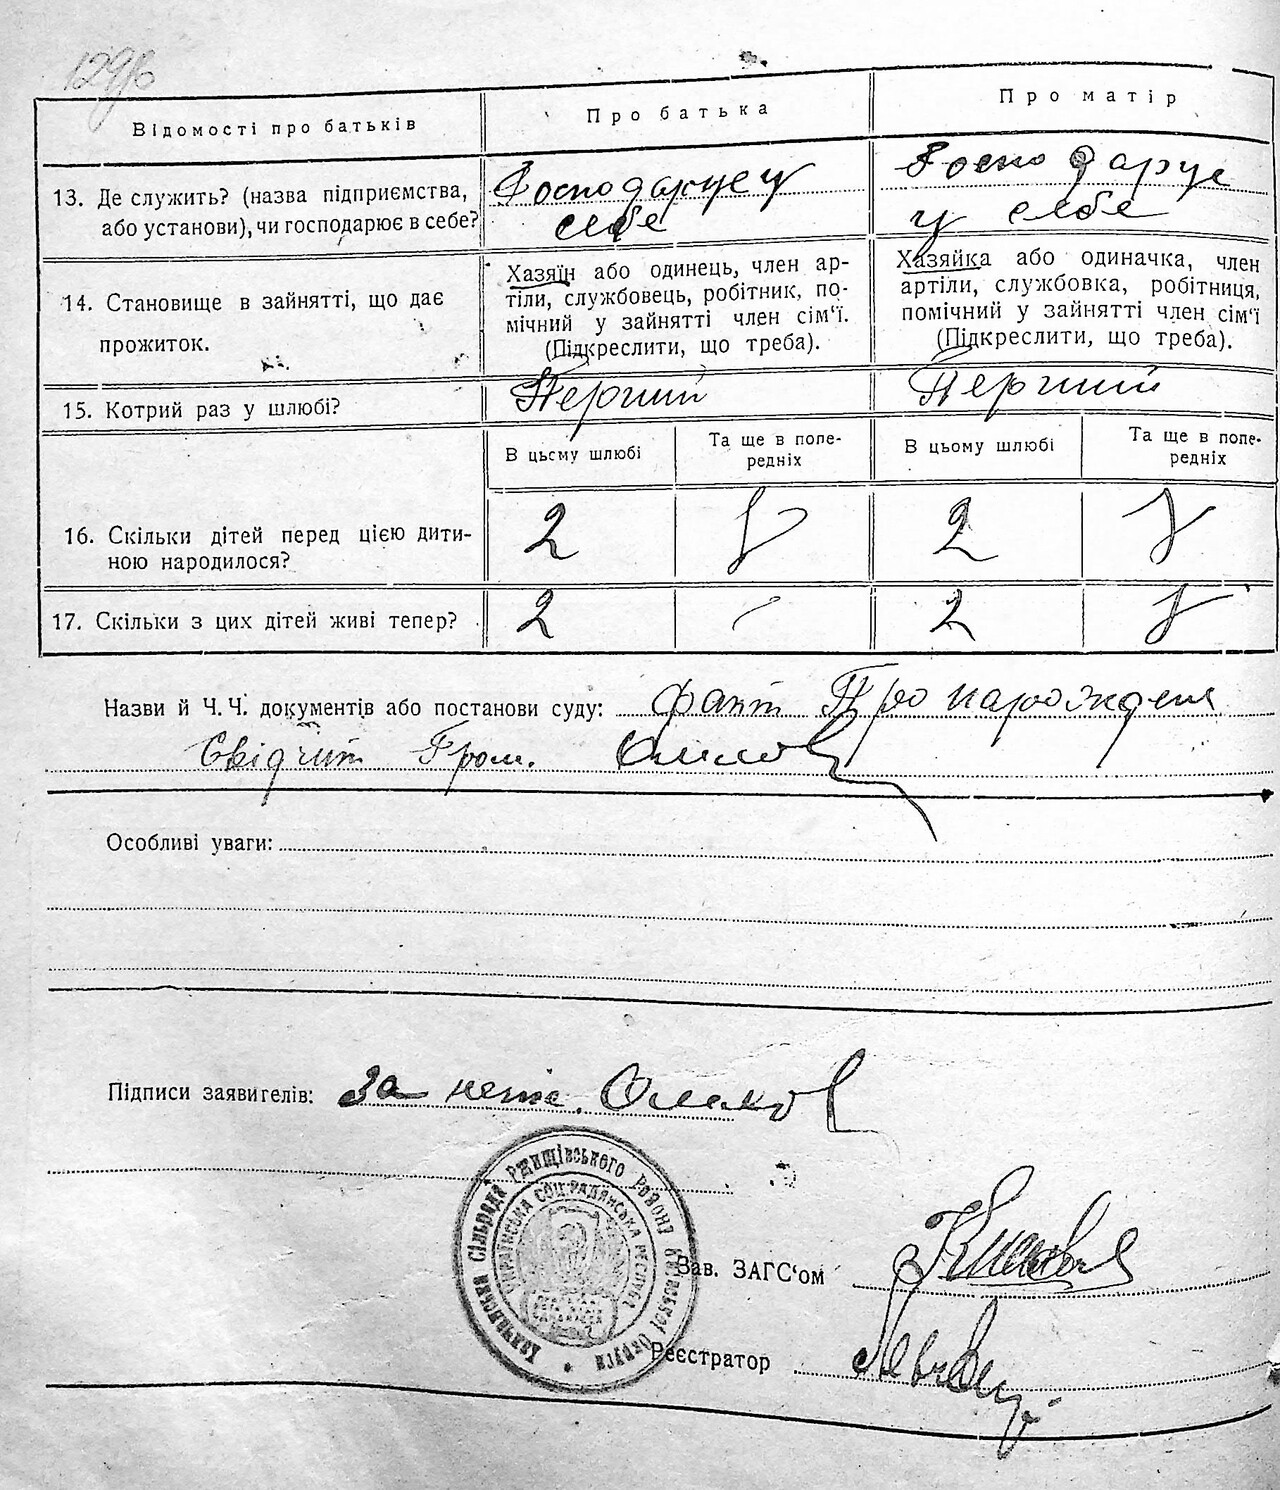 129
Відомості про батьків
Про батька
Про матір
13. Де служить? (назва підприємства,
або установи), чи господарює в себе?
Господарює у
себе
Господарує
у себе
14. Становище в зайнятті, що дає
прожиток.
Хазяїн або одинець, член ар-
тіли, службовець, робітник, по-
мічний у зайнятті член сім'ї.
(Підкреслити, що треба).
Хазяйка або одиначка, член
артіли, службовка, робітниця,
помічний у зайнятті член сім'ї
(Підкреслити, що треба).
15. Котрий раз у шлюбі?
Перший
Перший
В цьому шлюбі
Та ще в попе-
редніх
В цьому шлюбі
Та ще в попе-
редніх
16. Скільки дітей перед цією дити-
ною народилося?
2
2
17. Скільки з цих дітей живі тепер?
2
2
Назви й Ч. Ч. документів або постанови суду: факт Про народження
Свідчит Гром.
Особливі уваги:
Підписи заявителів: За
Сільрада Ржищівського Району Київської Округи
УКРАЇНСЬКА СОЦ. РАДЯНСЬКА РЕСПУБ.
Зав. ЗАГС'ом
Реєстратор